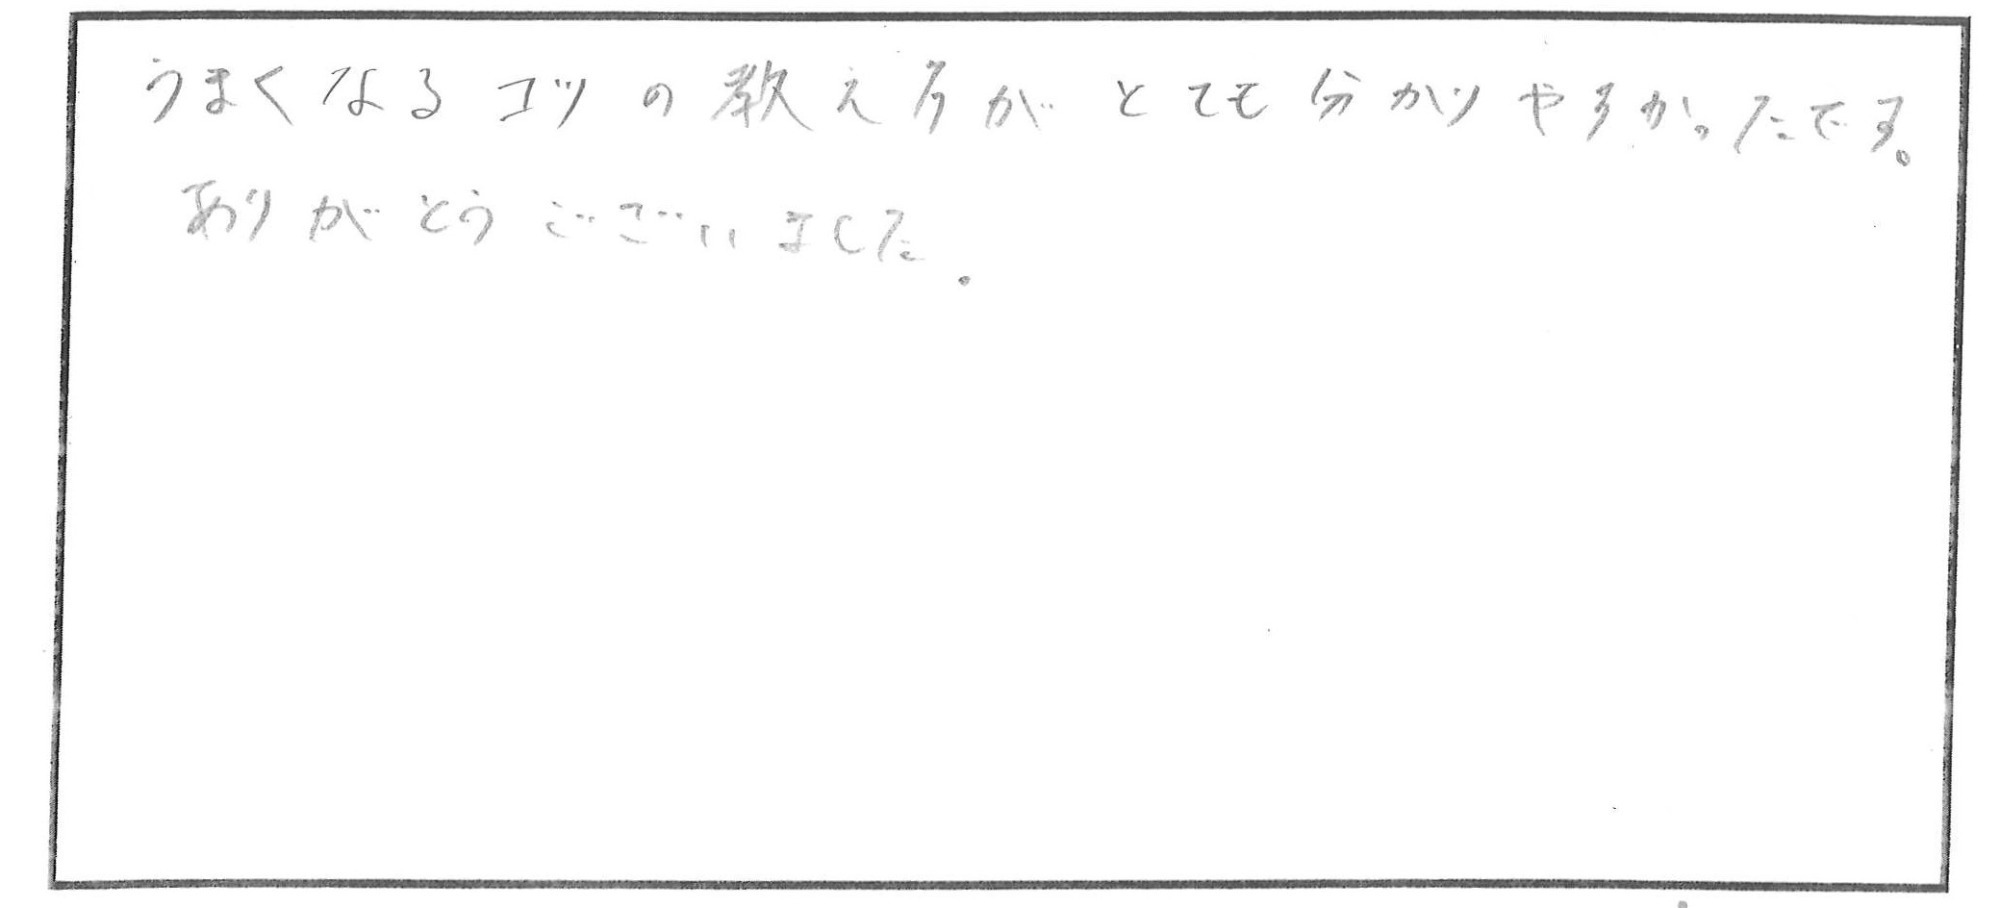 うまくなるコツの教え方がとても分かりやすかったです。
ありがとうございました。